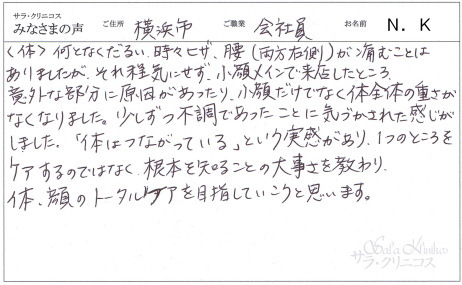 サラ・クリニコス
みなさまの声 ご住所 横浜市 ご職業 会社員 お名前 N. K
〈体〉何となくだるい、時々ヒザ、腰(両方右側)が痛むことは
ありましたが、それ程気にせず、小顔メインで来店したところ、
意外な部分に原因があったり、小顔だけでなく体全体の重さが
なくなりました。少しずつ不調であったことに気づかされた感じが
しました。「体はつながっている」という実感があり、1つのところを
ケアするのではなく、根本を知ることの大事さを教わり、
体、顔のトータルケアを目指していこうと思います。
サラ・クリニコス